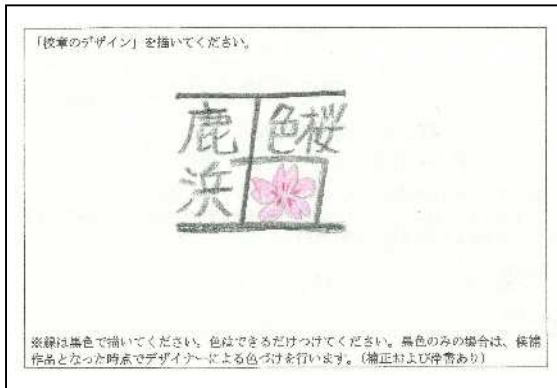 「校章のデザイン」を描いてください。
鹿浜
色桜
※線は黒色で描いてください。色はできるだけつけてください。黒色のみの場合は、候補
作品となった時点でデザイナーによる色づけを行います。（補正および浄書あり）